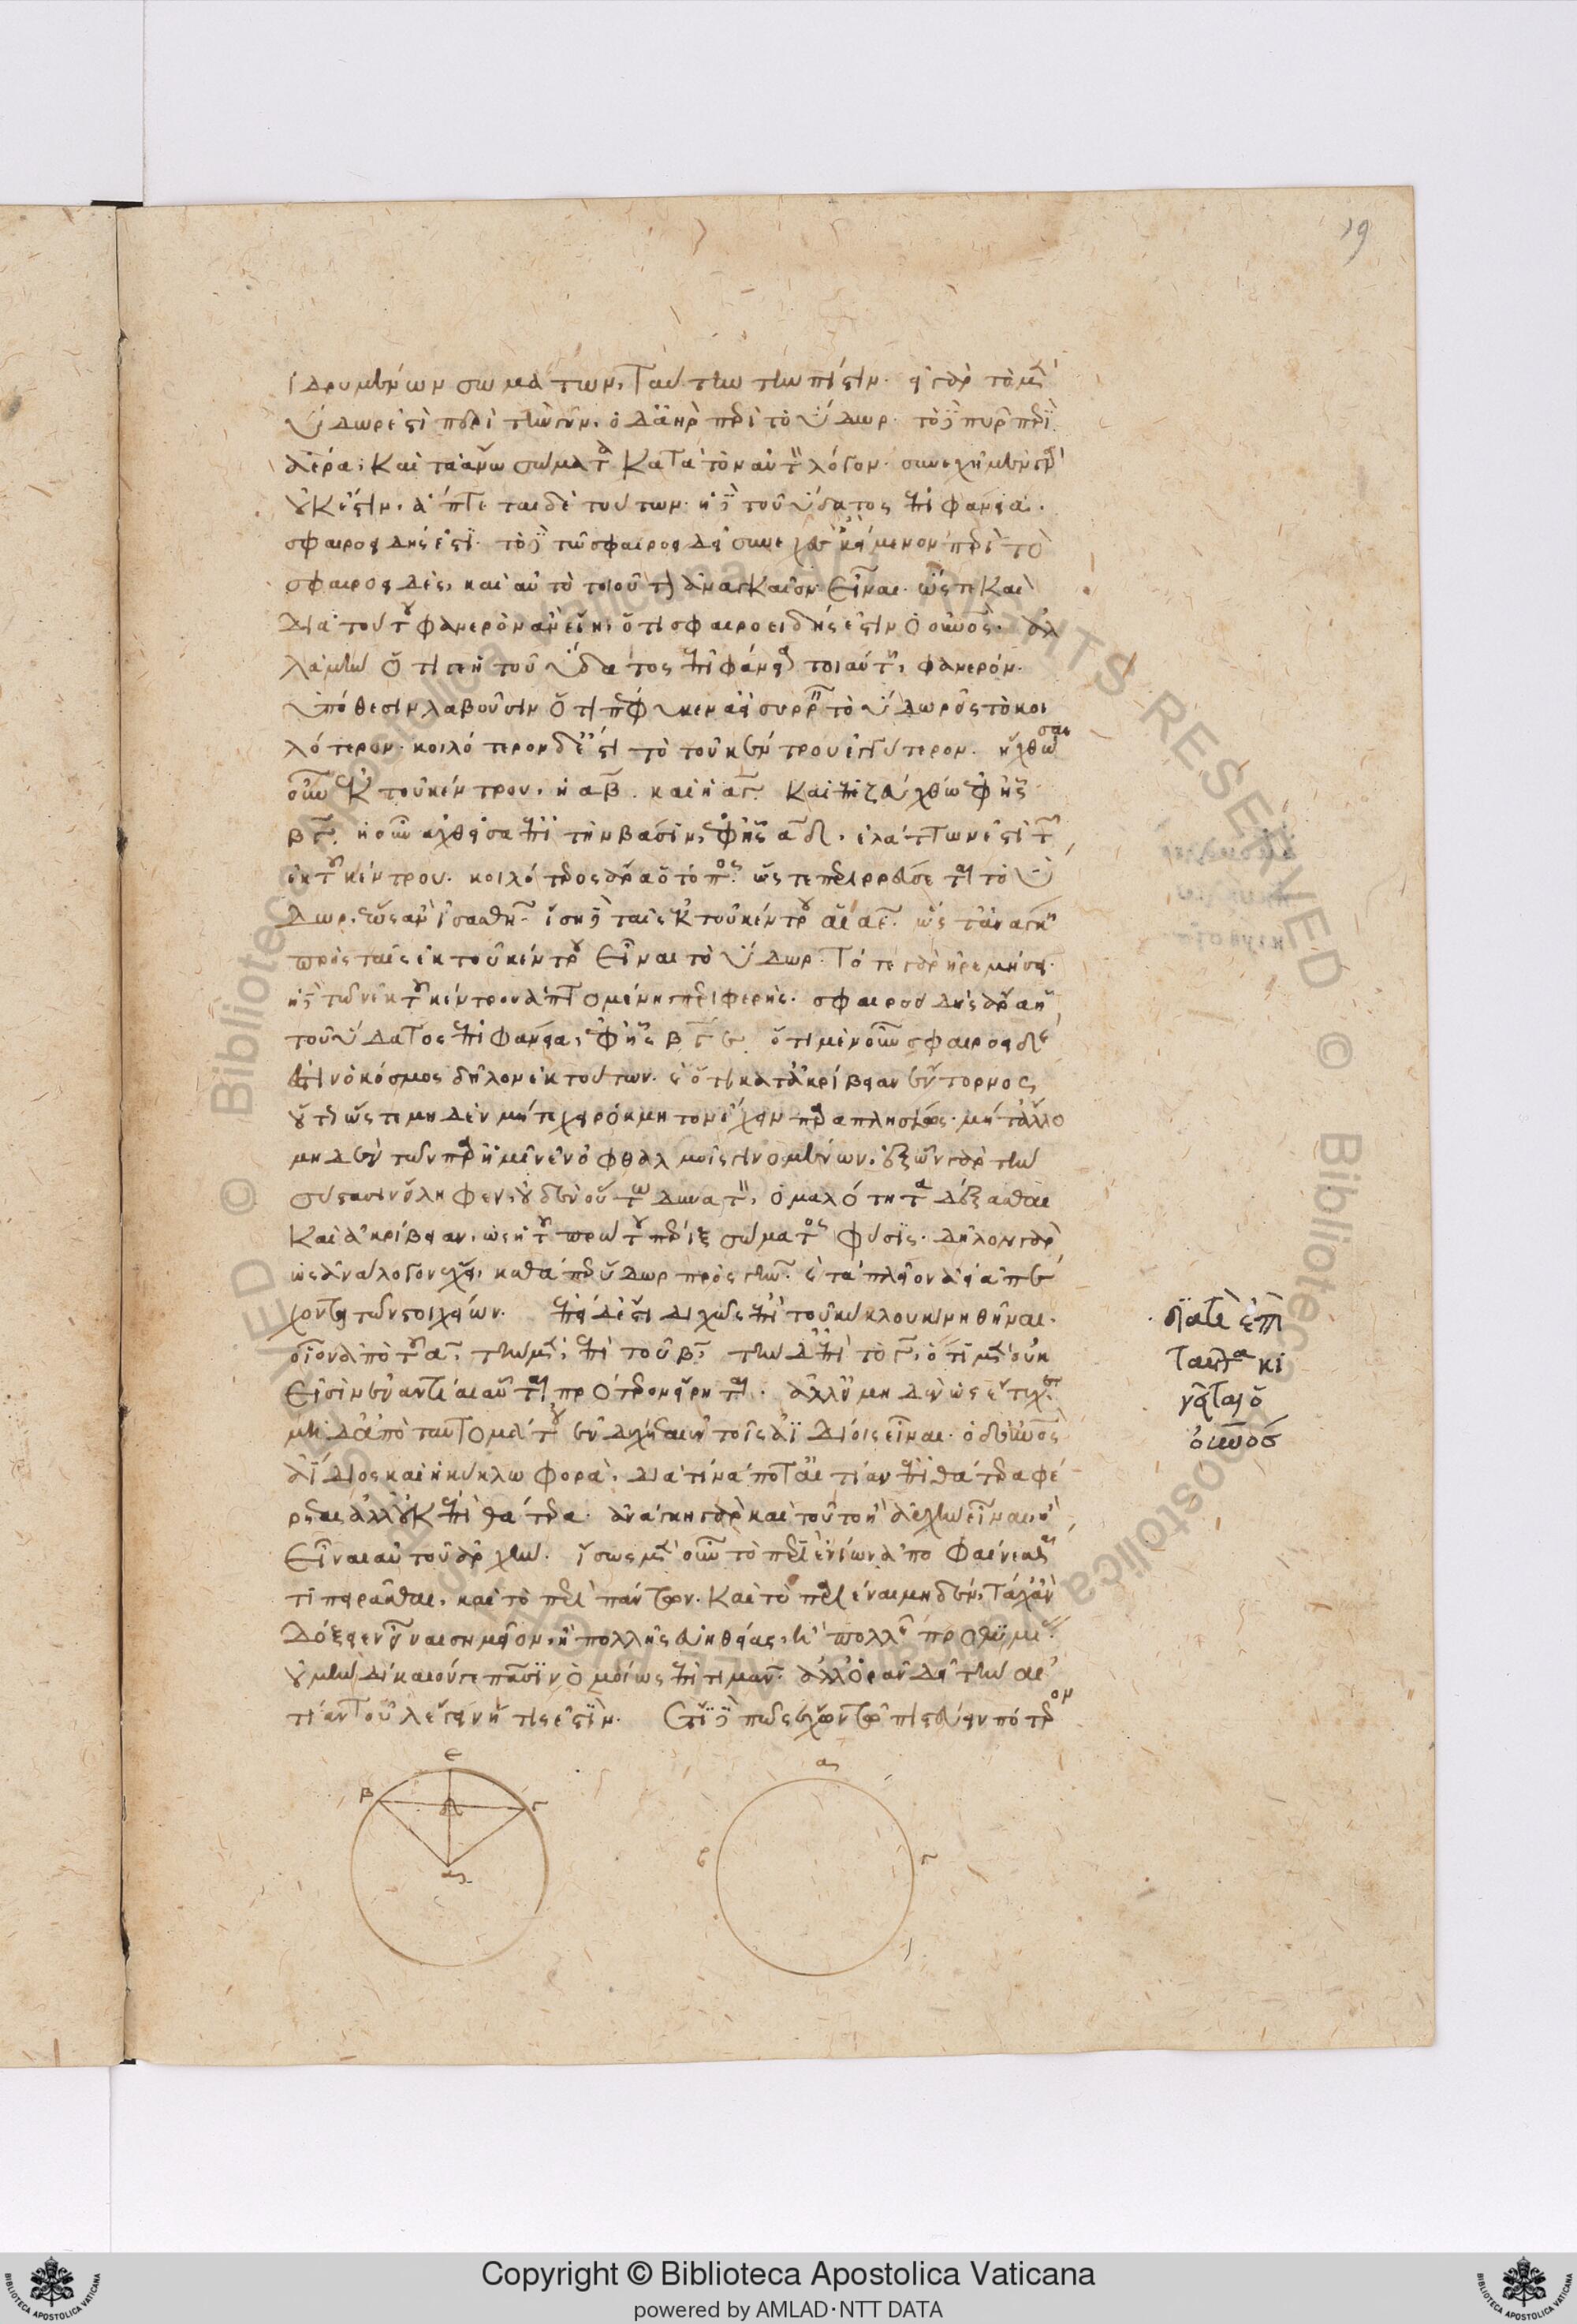 ἱδρυμένων σωμάτων, ταύτην τὴν πίστιν. εἰ γὰρ τὸ μὲν
ὕδωρ ἐστὶ περὶ τὴν γῆν, ὁ δ' ἀὴρ περὶ τὸ ὕδωρ. τὸ δὲ πῦρ περὶ
ἀέρα, καὶ τὰ ἄνω σώματα κατὰ τὸν αὐτὸν λόγον. συνεχῆ μὲν γὰρ
οὐκ ἔστιν, ἅπτεται δὲ τούτων. ἡ δὲ τοῦ ὕδατος ἐπιφάνεια.
σφαιροειδής ἐστι. τὸ δὲ τῶ σφαιροειδεῖ συνεχὲς ἢ κείμενον περὶ τὸ
σφαιροειδὲς, καὶ αὐτὸ τοιοῦτον ἀναγκαῖον εἶναι. ὥστε καὶ
διὰ τούτου φανερὸν ἂν εἴη, ὅτι σφαιροειδής ἐστιν ὁ οὐνος. ἀλ
λὰ μὴν ὅτι γε ἡ τοῦ ὕδατος ἐπιφάνεια τοιαύτη, φανερόν.
ὑπόθεσιν λαβοῦσιν ὅτι πέφυκεν ἀεὶ συρρεῖν τὸ ὕδωρ εἰς τὸ κοι
λότερον. κοιλότερον δέ ἐστι τὸ τοῦ κέντρου ἐγγύτερον. ἤχθωσαν
οὖν ἐκ τοῦ κέντρου, ἡ αβ. καὶ ἡ αγ. καὶ ἐπιζεύχθω ἐφ' ἧς
βγ. ἡ οὖν ἀχθεῖσα ἐπὶ τὴν βάσιν, ἐφ' ἧς αδ, ἐλάττων ἐστὶ τῶν
ἐκ τοῦ κέντρου. κοιλότερος ἄρα ὁ τόπος. ὥστε περιρρεύσεται τὸ ὕ
δωρ, ἕως ἂν ἰσασθῆ. ἴση δὲ ταῖς ἐκ τοῦ κέντρου ἡ αε. ὥστ' ἀνάγκη
πρὸς ταῖς ἐκ τοῦ κέντρου εἶναι τὸ ὕδωρ. τότε γὰρ ἠρεμήσει.
ἡ δὲ τῶν ἐκ τοῦ κέντρου ἁπτομένη περιφερής. σφαιροειδὴς ἄρα ἡ
τοῦ ὕδατος ἐπιφάνεια, ἐφ' ἧς βεγ. ὅτι μὲν οὖν σφαιροειδής
ἐστιν ὁ κόσμος δῆλον ἐκ τούτων. καὶ ὅτι κατ' ἀκρίβειαν ἔντορνος
οὕτως ὥστε μηδὲν μήτε χειρόκμητον ἔχειν παραπλησίως. μήτ' ἄλλο
μηδὲν τῶν παρ' ἡμῖν ἐν ὀφθαλμοῖς γινομένων. ἐξ ὧν γὰρ τὴν
σύστασιν εἴληφεν, οὐδὲν οὕτω δυνατὸν, ὁμαλότητα δέξασθαι
καὶ ἀκρίβειαν, ὡς ἡ τοῦ πρώτου πέριξ σώματος φύσις. δῆλον γὰρ
ὡς ἀνάλογον ἔχει, καθάπερ ὕδωρ πρὸς γῆν. καὶ τὰ πλεῖον ἀεὶ ἀπέ
χοντα τῶν στοιχείων. ἐπεὶ δέ ἐστι διχῶς ἐπὶ τοῦ κύκλου κινηθῆναι.
οἷον ἀπὸ τοῦ α, τὴν μὲν, ἐπὶ τοῦ β, τὴν δ' ἐπὶ τὸ γ, ὅτι μὲν οὐκ
εἰσὶν ἐναντίαι αὗται πρότερον εἴρηται. ἀλλ' εἰ μηδὲν ὡς ἔτυχε
μηδ' ἀπὸ ταυτομάτου ἐνδέχεται ἐν τοῖς ἀϊδίοις εἶναι. ὁ δ' οὐνος
ἀΐδιος καὶ ἡ κύκλω φορὰ, διὰ τίνα ποτ' αἰτίαν ἐπὶ θάτερα φέ
ρεται ἀλλ' οὐκ ἐπὶ θάτερα. ἀνάγκη γὰρ καὶ τοῦτο ἢ ἀρχὴν εἶναι ἢ
εἶναι αὐτοῦ ἀρχήν. ἴσως μὲν οὖν τὸ περὶ ἐνίων ἀποφαίνεσθαί
τι πειρᾶσθαι, καὶ τὸ περὶ πάντων. καὶ τὸ παριέναι μηδὲν, τάχ' ἂν
δόξειεν εἶναι σημεῖον, ἢ πολλῆς εὐηθείας, ἢ πολλῆς προθυμίας
οὐ μὴν δίκαιόν γε πᾶσιν ὁμοίως ἐπιτιμᾶν. ἀλλ' ὁρᾶν δεῖ τὴν αἰ
τίαν τοῦ λέγειν ἥτις ἐστίν. ἔτι δὲ πῶς ἔχων τῶ πιστεύειν πότερον
διατὶ ἐπὶ
ταῦτα κι
νεῖται ὁ
οὐνοσ
ε
β
δ
γ
α
α
β
γ
19
Copyright © Biblioteca Apostolica Vaticana
powered by AMLAD·NTT DATA